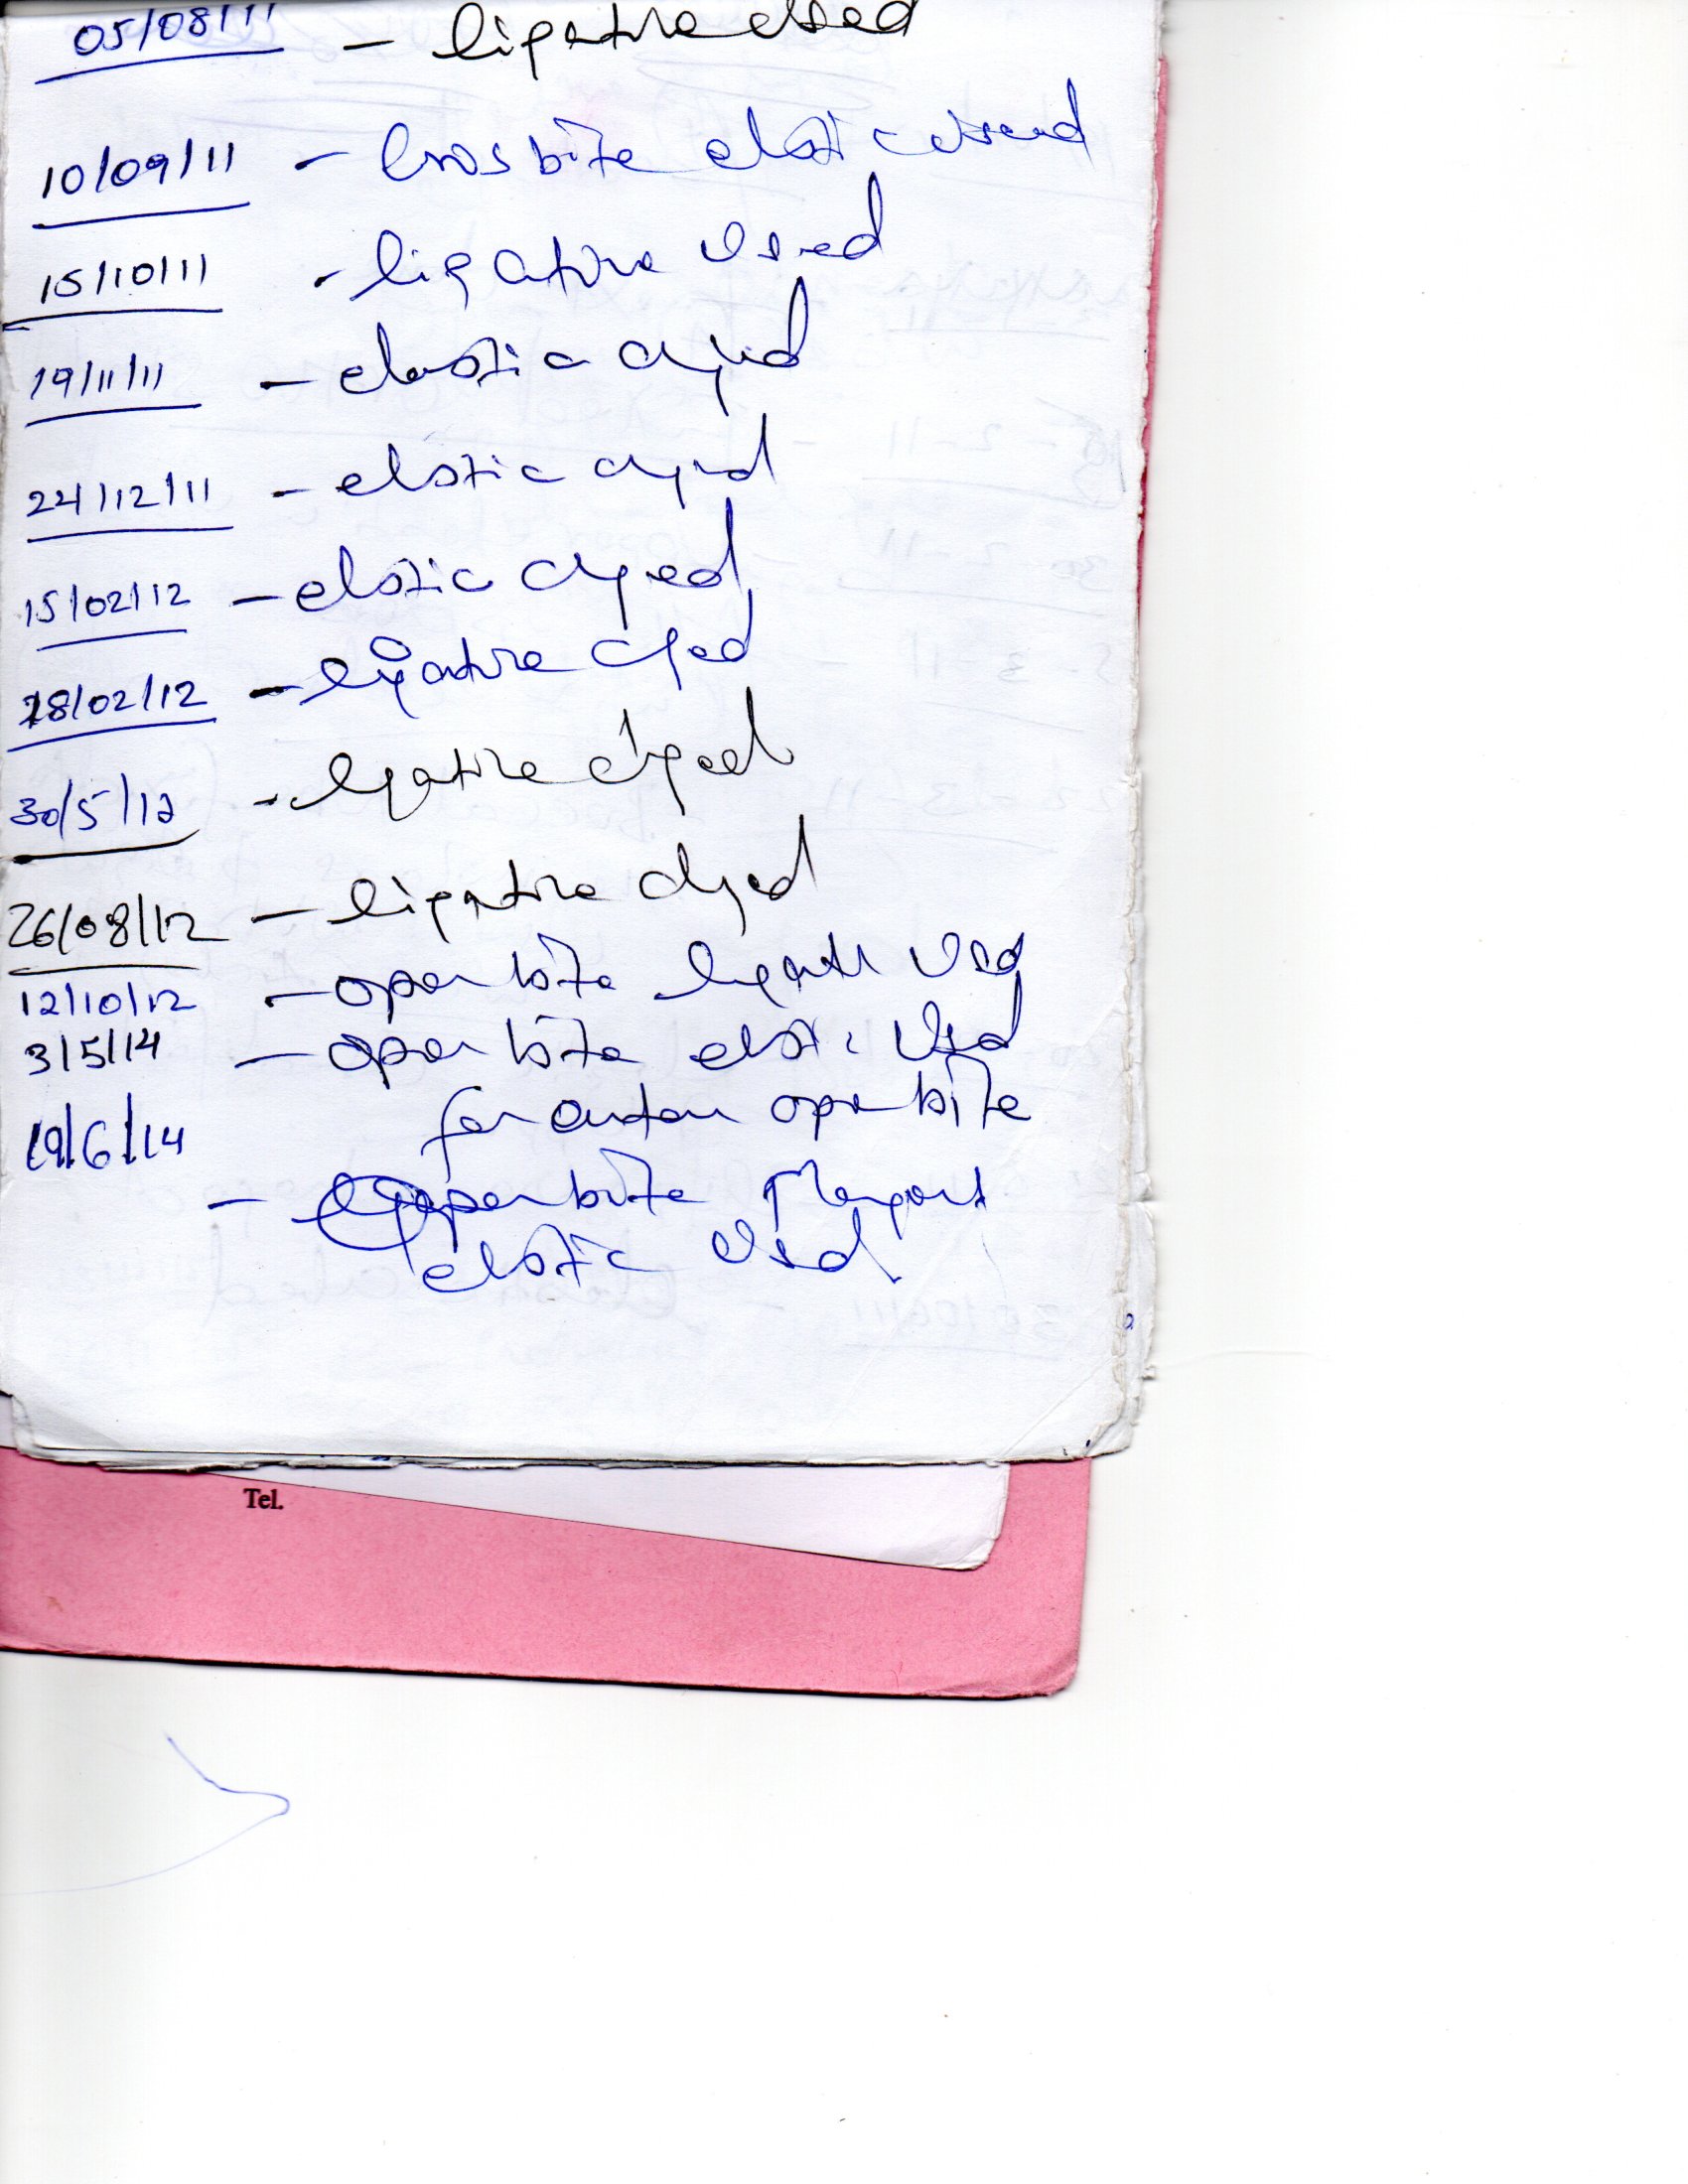 05/08/11 – ligature used
10/09/11 – Cros bite elastic used
15/10/11 - ligature Used
19/11/11 – elastic chged
24/12/11 – elastic chged
15/02/12 – elastic chged
28/02/12 – ligature chged
30/5/12 - ligature chged
26/08/12 – ligature chged
12/10/12 – open bite ligature Used
3/5/14 – open bite elastic Used
19/6/14 for open bite
– open bite elastic Used
Tel.